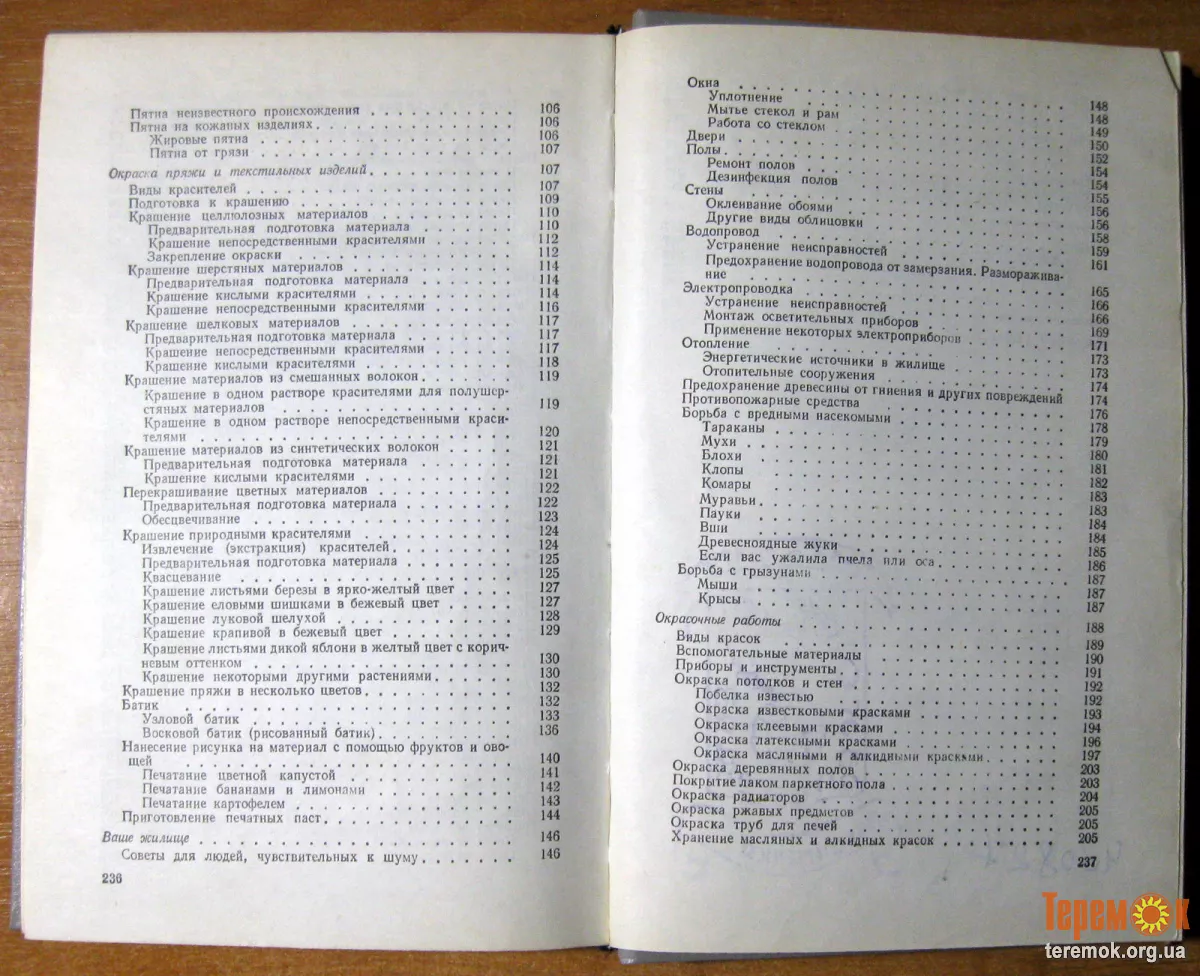 Пятна неизвестного происхождения . . . 106
Пятна на кожаных изделиях . . . 106
Жировые пятна . . . 106
Пятна от грязи . . . 107
Окраска пряжи и текстильных изделий . . . 107
Виды красителей . . . 107
Подготовка к крашению . . . 109
Крашение целлюлозных материалов . . . 110
Предварительная подготовка материала . . . 110
Крашение непосредственными красителями . . . 112
Закрепление окраски . . . 112
Крашение шерстяных материалов . . . 114
Предварительная подготовка материала . . . 114
Крашение кислыми красителями . . . 114
Крашение непосредственными красителями . . . 116
Крашение шелковых материалов . . . 117
Предварительная подготовка материала . . . 117
Крашение непосредственными красителями . . . 117
Крашение кислыми красителями . . . 118
Крашение материалов из смешанных волокон . . . 119
Крашение в одном растворе красителями для полушер-
стяных материалов . . . 119
Крашение в одном растворе непосредственными краси-
телями . . . 120
Крашение материалов из синтетических волокон . . . 121
Предварительная подготовка материала . . . 121
Крашение кислыми красителями . . . 121
Перекрашивание цветных материалов . . . 122
Предварительная подготовка материала . . . 122
Обесцвечивание . . . 123
Крашение природными красителями . . . 124
Извлечение (экстракция) красителей . . . 124
Предварительная подготовка материала . . . 125
Квасцевание . . . 125
Крашение листьями березы в ярко-желтый цвет . . . 127
Крашение еловыми шишками в бежевый цвет . . . 127
Крашение луковой шелухой . . . 128
Крашение крапивой в бежевый цвет . . . 129
Крашение листьями дикой яблони в желтый цвет с корич-
невым оттенком . . . 130
Крашение некоторыми другими растениями . . . 130
Крашение пряжи в несколько цветов . . . 132
Батик . . . 132
Узловой батик . . . 133
Восковой батик (рисованный батик) . . . 136
Нанесение рисунка на материал с помощью фруктов и ово-
щей . . . 140
Печатание цветной капустой . . . 141
Печатание бананами и лимонами . . . 142
Печатание картофелем . . . 143
Приготовление печатных паст . . . 144
Ваше жилище . . . 146
Советы для людей, чувствительных к шуму . . . 146
236
Окна . . . 148
Уплотнение . . . 148
Мытье стекол и рам . . . 149
Работа со стеклом . . . 150
Двери . . . 152
Полы . . . 154
Ремонт полов . . . 154
Дезинфекция полов . . . 155
Стены . . . 156
Оклеивание обоями . . . 156
Другие виды облицовки . . . 158
Водопровод . . . 159
Устранение неисправностей . . . 161
Предохранение водопровода от замерзания. Разморажива-
ние . . . 165
Электропроводка . . . 166
Устранение неисправностей . . . 166
Монтаж осветительных приборов . . . 169
Применение некоторых электроприборов . . . 171
Отопление . . . 173
Энергетические источники в жилище . . . 173
Отопительные сооружения . . . 174
Предохранение древесины от гниения и других повреждений 174
Противопожарные средства . . . 176
Борьба с вредными насекомыми . . . 178
Тараканы . . . 179
Мухи . . . 180
Блохи . . . 181
Клопы . . . 182
Комары . . . 183
Муравьи . . . 183
Пауки . . . 184
Вши . . . 184
Древесноядные жуки . . . 185
Если вас ужалила пчела или оса . . . 186
Борьба с грызунами . . . 187
Мыши . . . 187
Крысы . . . 187
Окрасочные работы . . . 188
Виды красок . . . 189
Вспомогательные материалы . . . 190
Приборы и инструменты . . . 191
Окраска потолков и стен . . . 192
Побелка известью . . . 192
Окраска известковыми красками . . . 193
Окраска клеевыми красками . . . 194
Окраска латексными красками . . . 196
Окраска масляными и алкидными красками . . . 197
Окраска деревянных полов . . . 203
Покрытие лаком паркетного пола . . . 203
Окраска радиаторов . . . 204
Окраска ржавых предметов . . . 205
Окраска труб для печей . . . 205
Хранение масляных и алкидных красок . . . 205
237
Теремок
teremok.org.ua